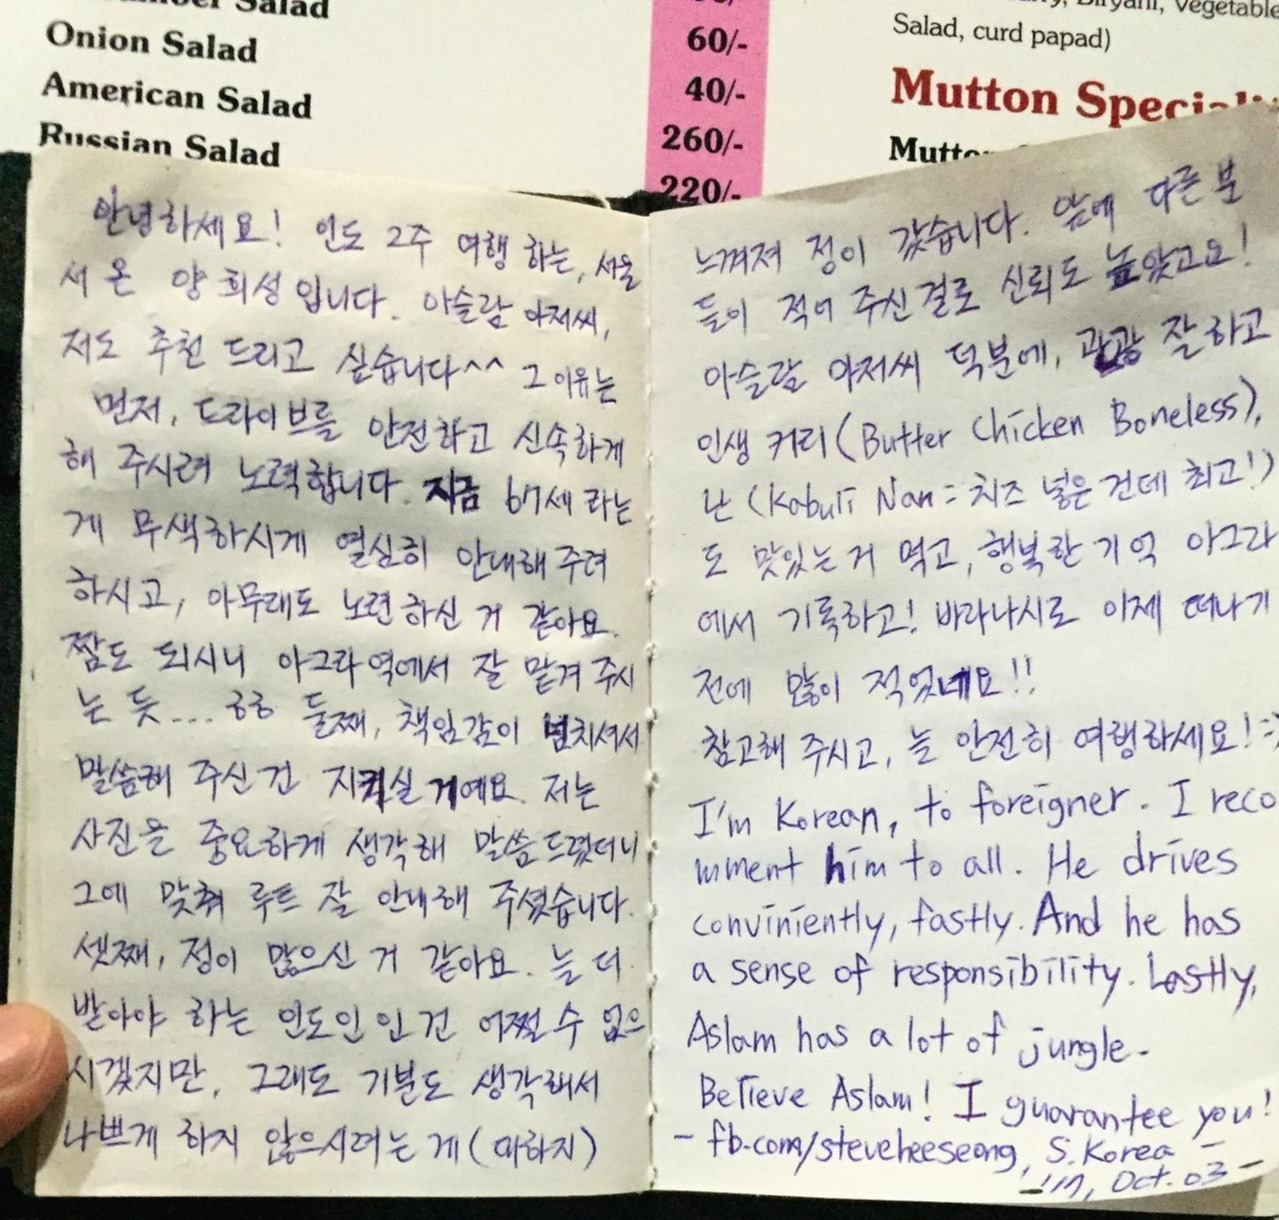 Salad
Onion Salad
American Salad
Russian Salad
60/-
40/-
260/-
220/-
Biryani, Vegetable
Salad, curd papad)
Mutton
안녕하세요! 인도 2주 여행 하는, 서울
서 온 양희성입니다. 아슬람 아저씨,
저도 추천 드리고 싶습니다^^ 그 이유는
먼저, 드라이브를 안전하고 신속하게
해 주시려 노력합니다. 지금 67세라는
게 무색하시게 열심히 안내해 주려
하시고, 아무래도 노련하신 거 같아요.
짬도 되시니 아그라역에서 잘 맡겨 주시
는 듯... ㅎㅎ 둘째, 책임감이 넘치셔서
말씀해 주신 건 지켜실 거예요. 저는
사진을 중요하게 생각해 말씀드렸더니
그에 맞춰 루트 잘 안내해 주셨습니다.
셋째, 정이 많으신 거 같아요. 늘 더
받아야 하는 인도인인 건 어쩔 수 없으
시겠지만, 그래도 기분도 생각해서
나쁘게 하지 않으시려는 게 (마하지)
느껴져 정이 갔습니다. 앞에 다른 분
들이 적어 주신걸로 신뢰도 높았고요!
아슬람 아저씨 덕분에, 관광 잘하고
인생 커리(Butter Chicken Boneless),
난 (Kabuli Nan = 치즈 넣은 건데 최고!)
도 맛있는 거 먹고, 행복한 기억 아그라
에서 기록하고! 바라나시로 이제 떠나기
전에 많이 적었네요!!
참고해 주시고, 늘 안전히 여행하세요! :)
I'm Korean, to foreigner. I reco
mment him to all. He drives
conviniently, fastly. And he has
a sense of responsibility. Lastly,
Aslam has a lot of jungle.
Believe Aslam! I guarantee you!
- fb.com/steveheeseong, S. Korea -
-'17, Oct. 03-